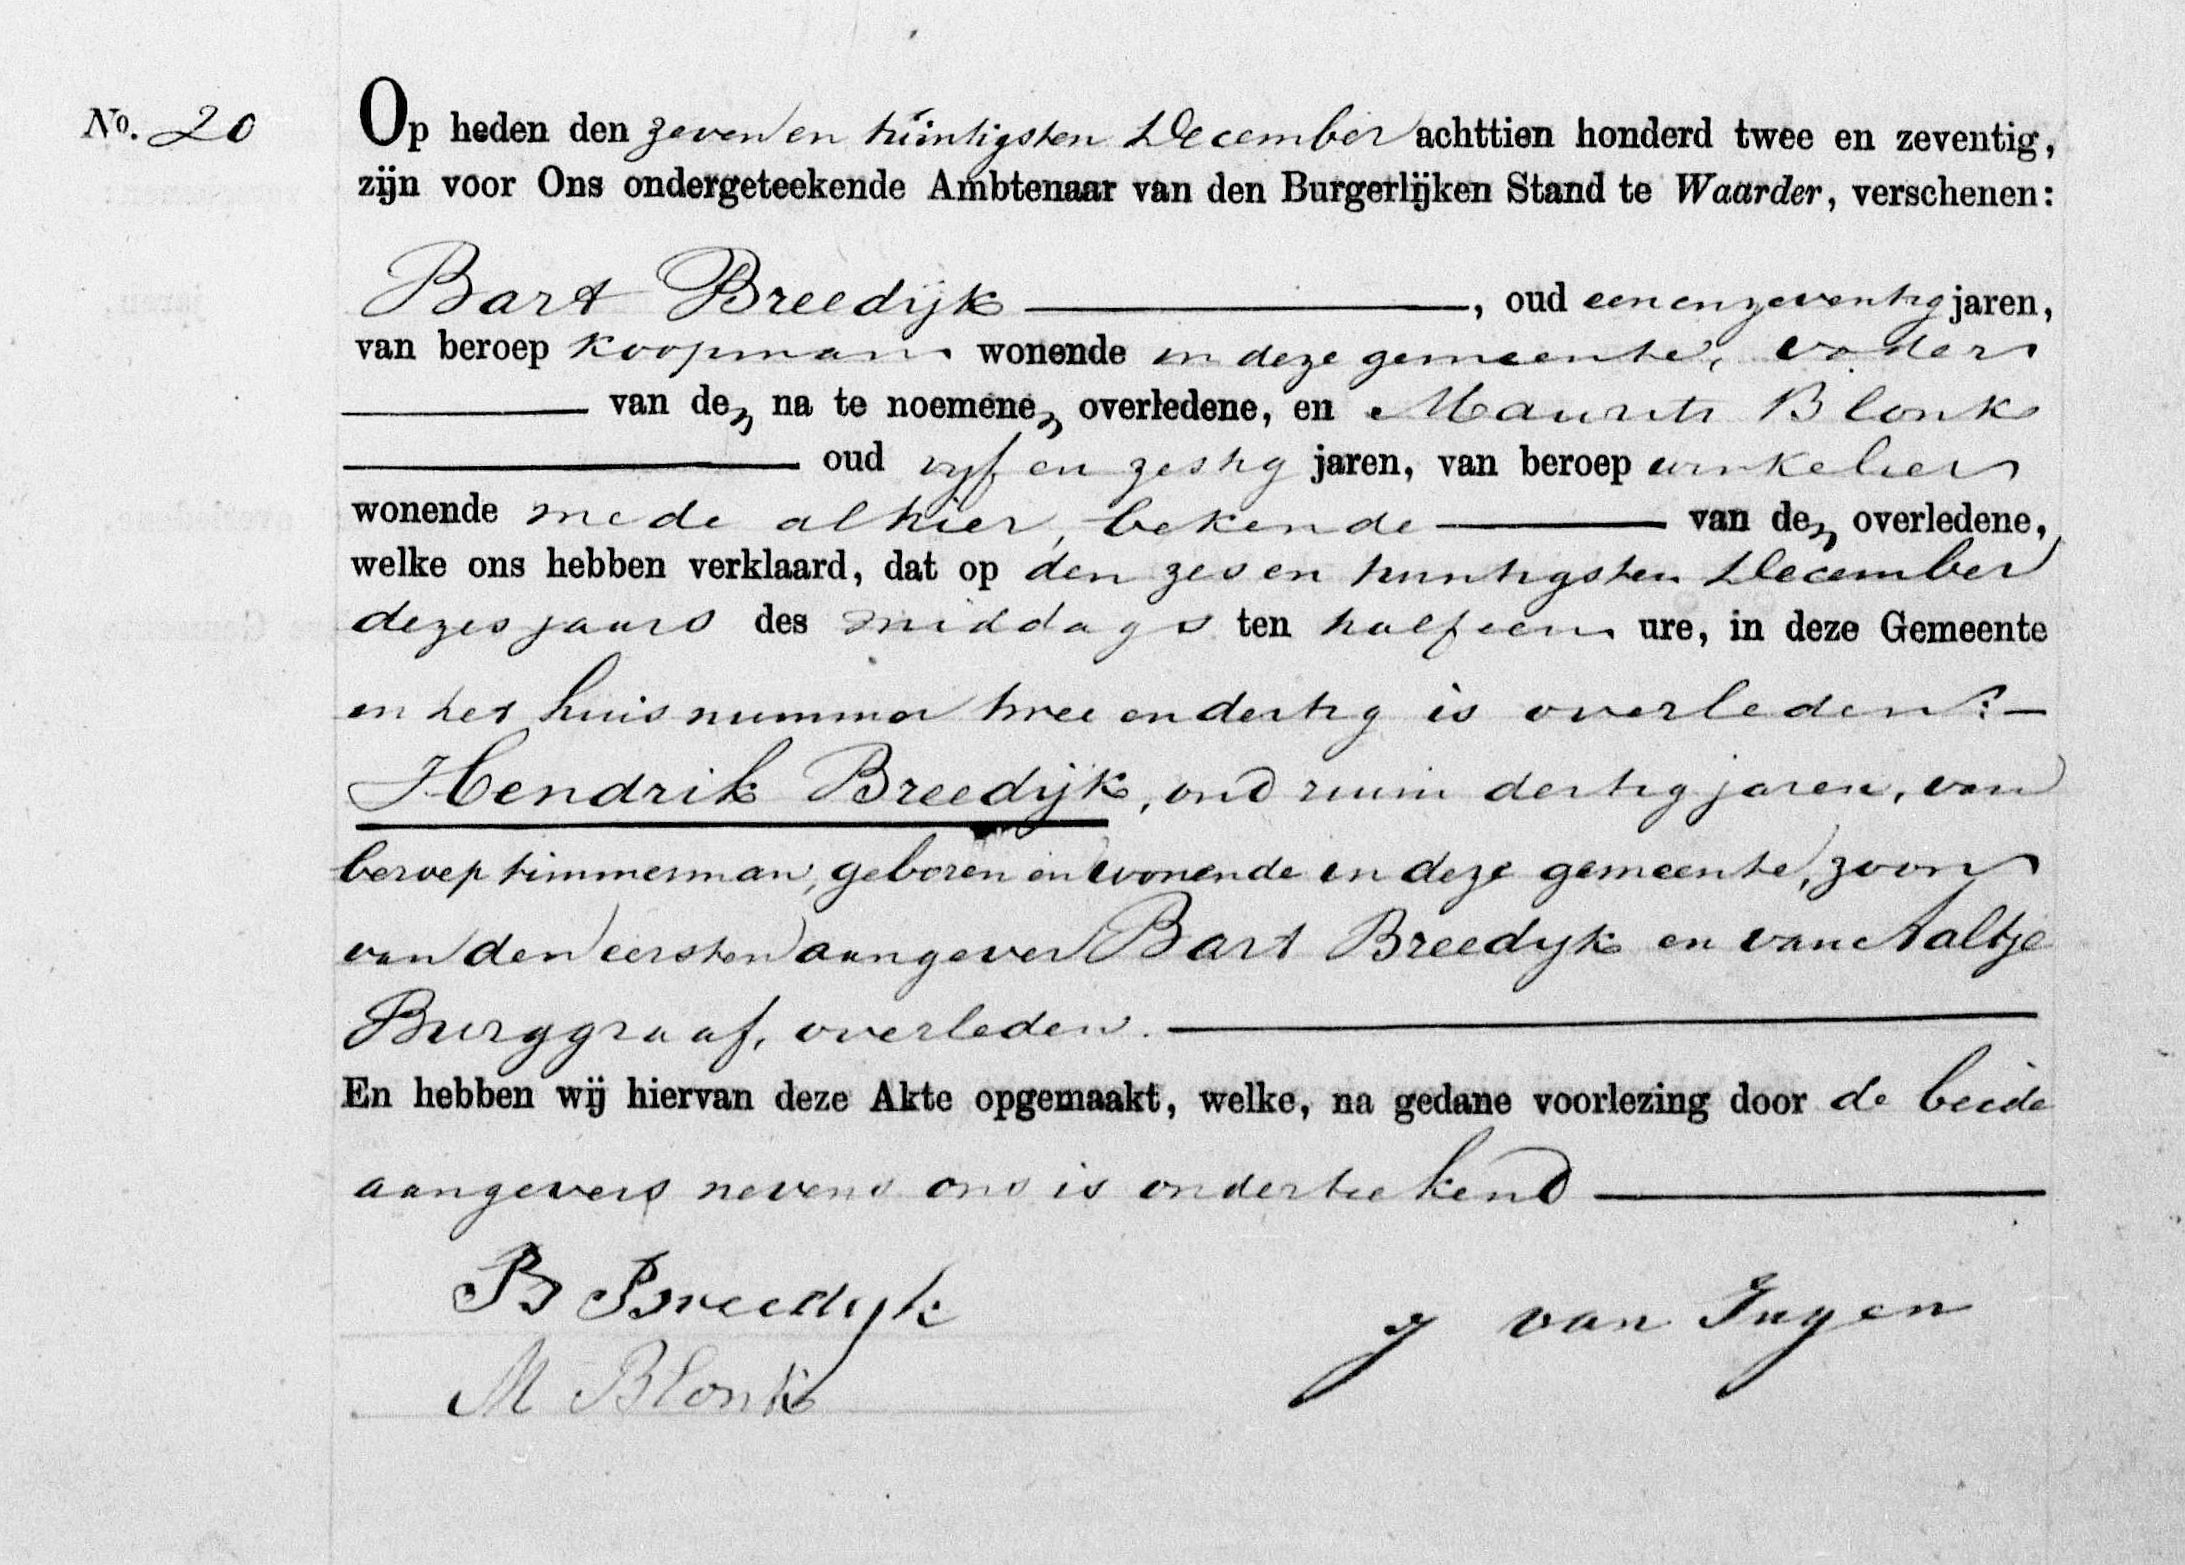 No. 20
Op heden den zeven en twintigsten December achttien honderd twee en zeventig,
zijn voor Ons ondergeteekende Ambtenaar van den Burgerlijken Stand te Waarder, verschenen:
Bart Breedijk, oud een en zeventig jaren,
van beroep koopman wonende in deze gemeente, vader
van den na te noemenen overledene, en Maurits Blonk
oud vyf en zestig jaren, van beroep winkelier
wonende mede alhier, bekende van den overledene,
welke ons hebben verklaard, dat op den zes en twintigsten December
dezes jaars des middags ten half een ure, in deze Gemeente
in het huis nummer twee en dertig is overleden:
Hendrik Breedijk, oud ruim dertig jaren, van
beroep timmerman, geboren en wonende in deze gemeente, zoon
van den eersten aangever Bart Breedyk en van Aaltje
Burggraaf, overleden.
En hebben wij hiervan deze Akte opgemaakt, welke, na gedane voorlezing door de beide
aangevers nevens ons is onderteekend
B Breedyk
J van Ingen
M Blonk